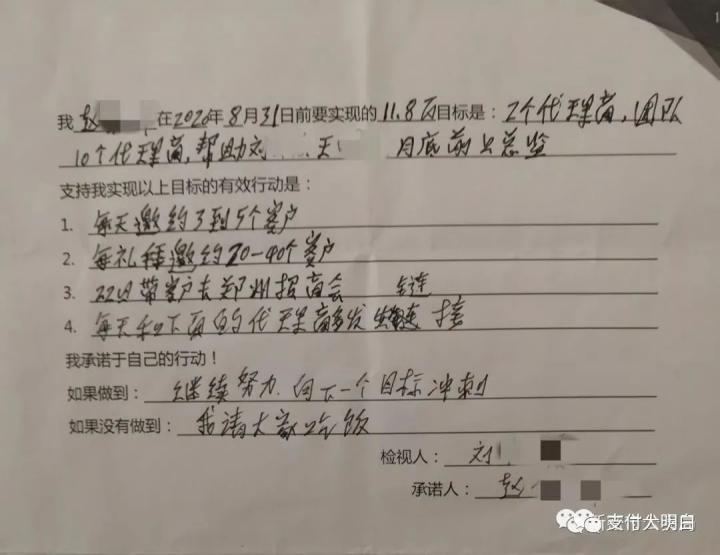 我 赵 在2020年8月31日前要实现的11.8万目标是：2个代理商，团队
10个代理商，帮助刘 天 月底前上总监
支持我实现以上目标的有效行动是：
1. 每天邀约3到5个客户
2. 每礼拜邀约20-40个客户
3. 22日带客户去郑州招商会 链
4. 每天和下面的代理商多发 接
我承诺于自己的行动！
如果做到：继续努力.向下一个目标冲刺
如果没有做到：我请大家吃饭
检视人：刘
承诺人：赵
新支付大明白